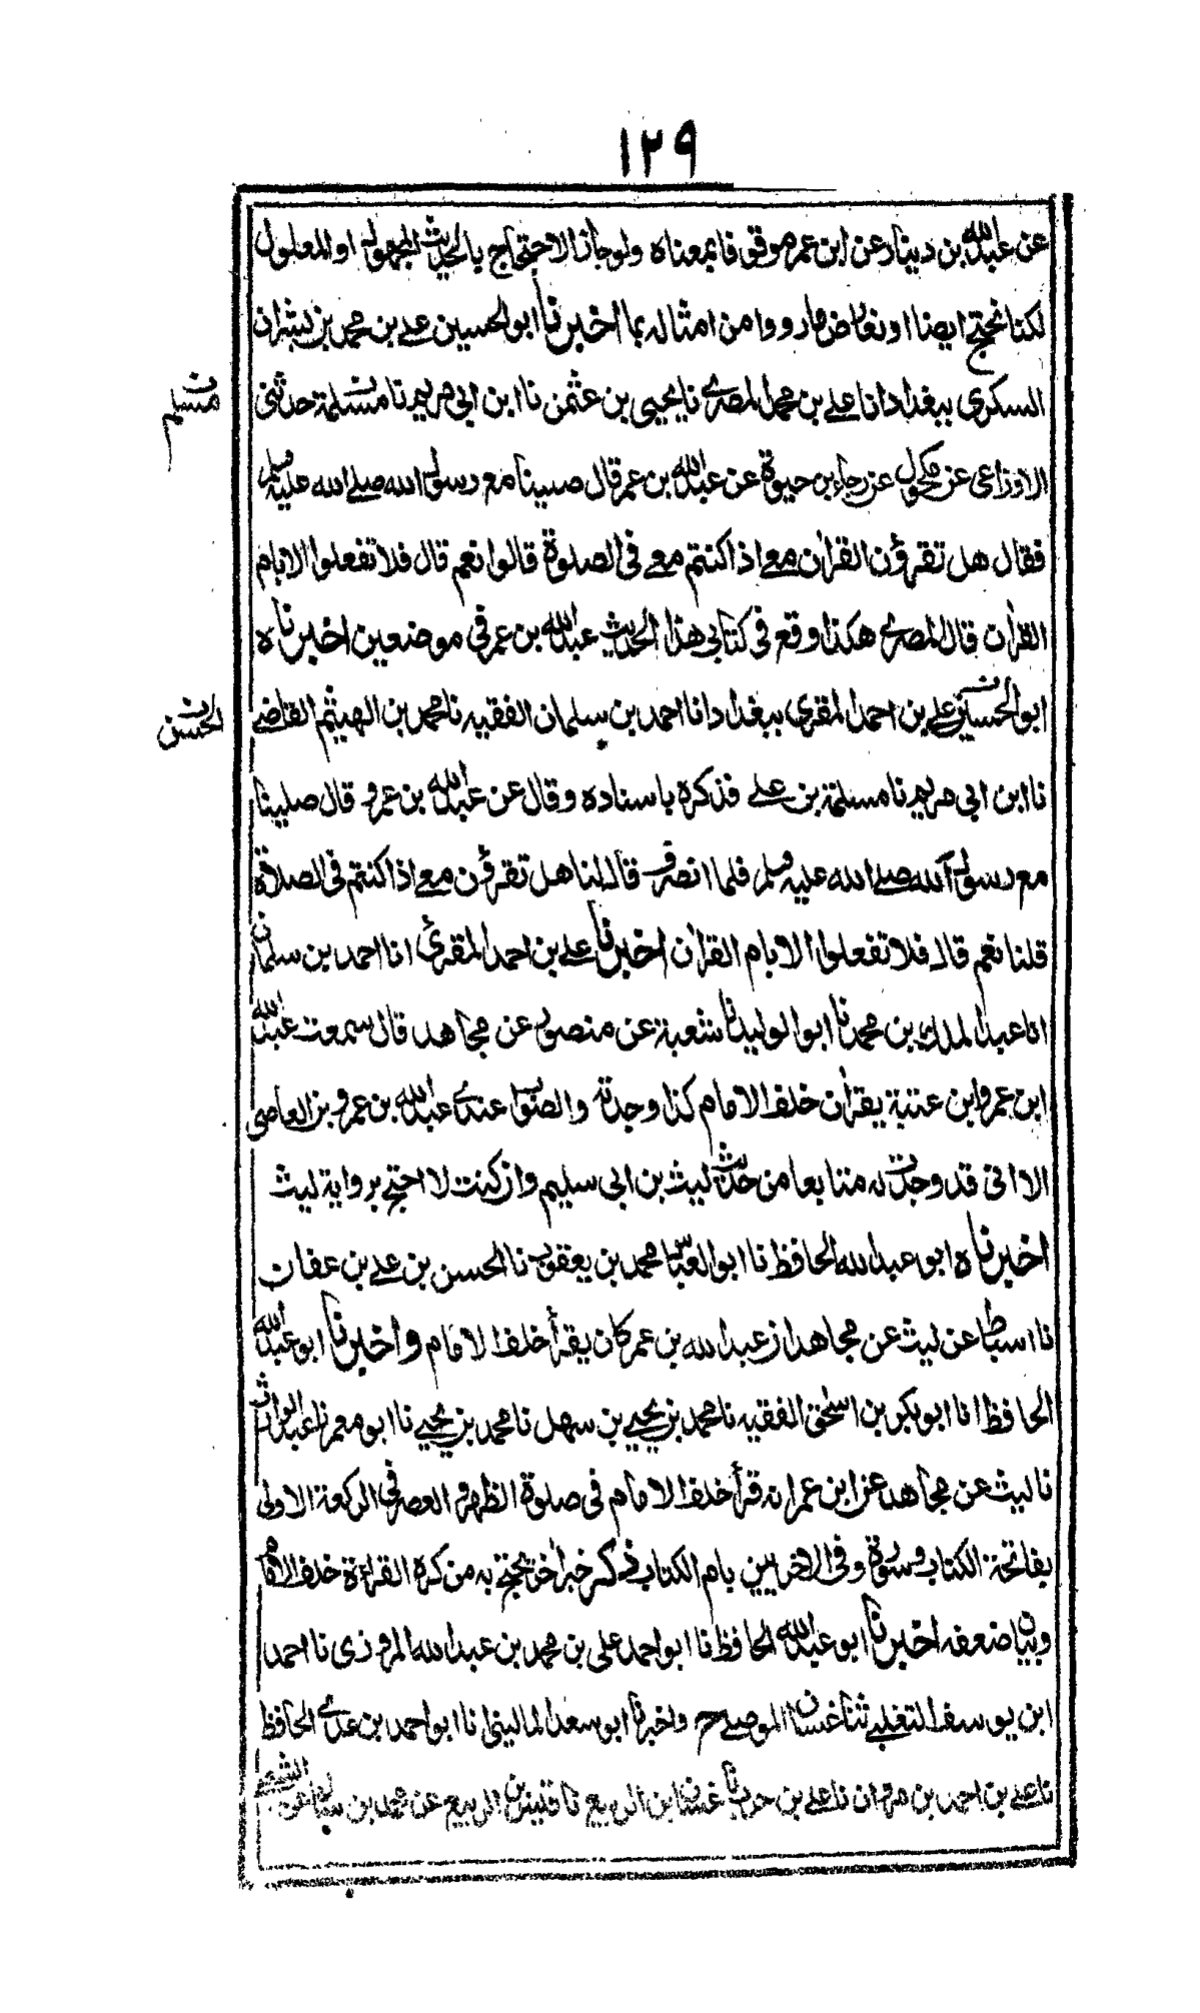 ١٢٩
عن عبد الله بن دينار عن ابن عمر موقوفا بمعناه ولو جاز الاحتجاج بالحديث المجهول او المعلول
لكنا نحتج ايضا او نعارض ما رووا من امثاله بما اخبرنا ابو الحسين علي بن محمد بن بشران
السكري ببغداد انا علي بن محمد المصري نا يحيى بن عثمن نا ابن ابي مريم نا مسلمة حدثني
مسلم
الاوزاعي عن مكحول عن رجاء بن حيوة عن عبد الله بن عمر قال صلينا مع رسول الله صلى الله عليه وسلم
فقال هل تقرؤن القران معي اذا كنتم معي في الصلوة قالوا نعم قال فلا تفعلوا الا بام
القران قال المصري هكذا وقع في كتابي هذا الحديث عبد الله بن عمر في موضعين اخبرناه
ابو الحسين علي بن احمد المقري ببغداد انا احمد بن سلمان الفقيه نا محمد بن الهيثم القاضي
الحسن
نا ابن ابي مريم نا مسلمة بن علي فذكره باسناده وقال عن عبد الله بن عمرو قال صلينا
مع رسول الله صلى الله عليه وسلم فلما انصرف قال لنا هل تقرؤن معي اذا كنتم في الصلاة
قلنا نعم قال فلا تفعلوا الا بام القران اخبرنا علي بن احمد المقرئ انا احمد بن سلمان
انا عبد الملك بن محمد نا ابو الوليد نا شعبة عن منصور عن مجاهد قال سمعت عبد الله
ابن عمر وابن عتبة يقران خلف الامام كذا وجدته والصواب عندي عبد الله بن عمرو بن العاصي
الا اني قد وجدت له متابعا من حديث ليث بن ابي سليم وان كنت لا احتج برواية ليث
اخبرناه ابو عبد الله الحافظ نا ابو العباس محمد بن يعقوب نا الحسن بن علي بن عفان
نا اسباط عن ليث عن مجاهد ان عبد الله بن عمر كان يقرأ خلف الامام واخبرنا ابو عبد الله
الحافظ انا ابو بكر بن اسحق الفقيه نا محمد بن يحيى بن سهل نا محمد بن يحيى نا ابو معمر نا عبد الوارث
نا ليث عن مجاهد عن ابن عمر انه قرأ خلف الامام في صلوة الظهر والعصر في الركعة الاولى
بفاتحة الكتاب وسورة وفي الاخريين بام الكتاب ذكر خبر اخر يحتج به من كره القراءة خلف الامام
وبيان ضعفه اخبرنا ابو عبد الله الحافظ نا ابو احمد علي بن محمد بن عبد الله المروزي نا احمد
ابن يوسف التغلبي ثنا غسان الموصلي ح واخبرنا ابو سعد الماليني انا ابو احمد بن عدي الحافظ
نا علي بن احمد بن مروان نا علي بن حرب نا غسان ابن الربيع نا قيس بن الربيع عن محمد بن سالم عن الشعبي